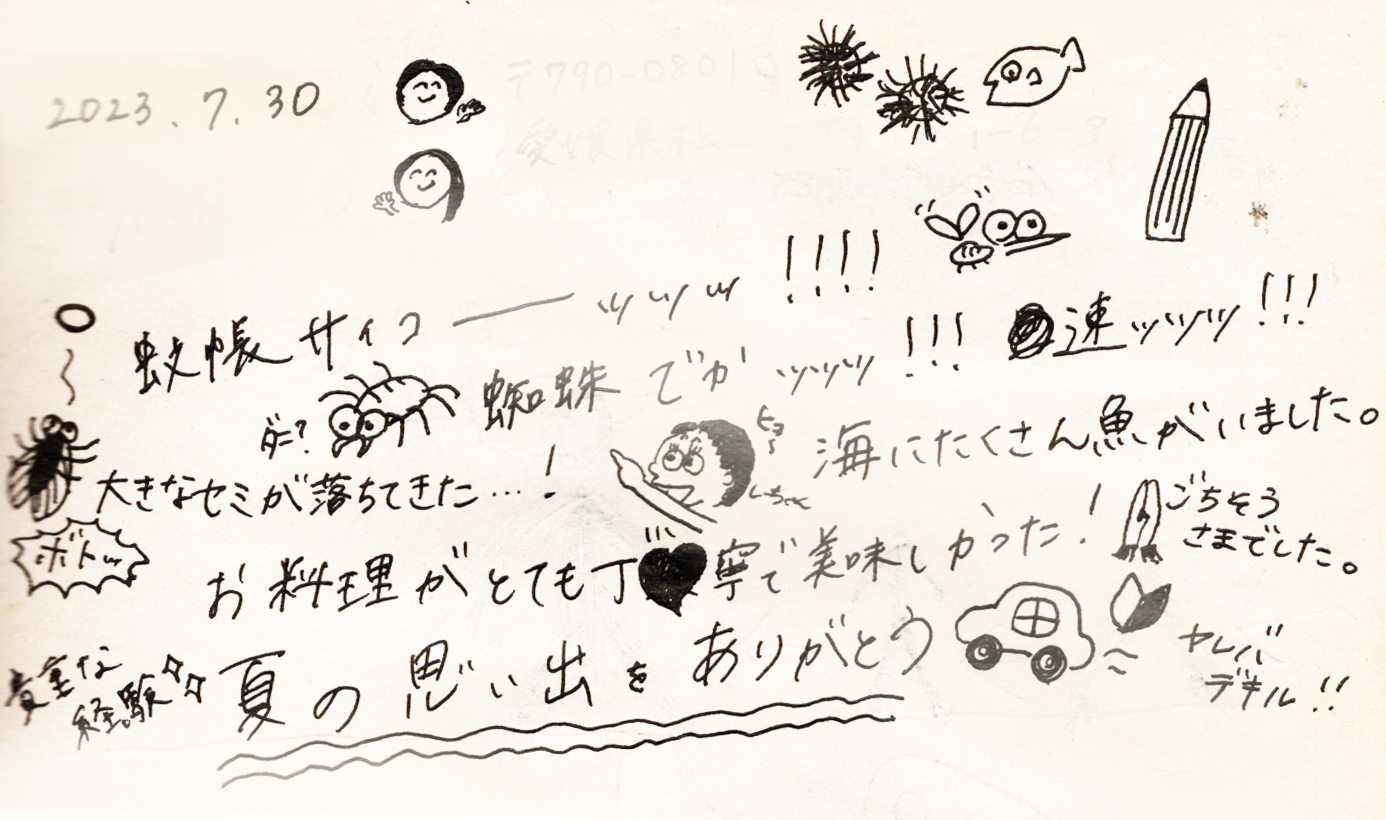 2023.7.30
蚊帳サイコーーッッッ!!!!
蜘蛛でかッッッ!!!
速ッッッ!!!
ダニ?
大きなセミが落ちてきた…!
ボトッ
海にたくさん魚がいました。
お料理がとても丁寧で美味しかった!
ごちそう
さまでした。
貴重な
経験
夏の思い出をありがとう
ヤレバ
デキル!!